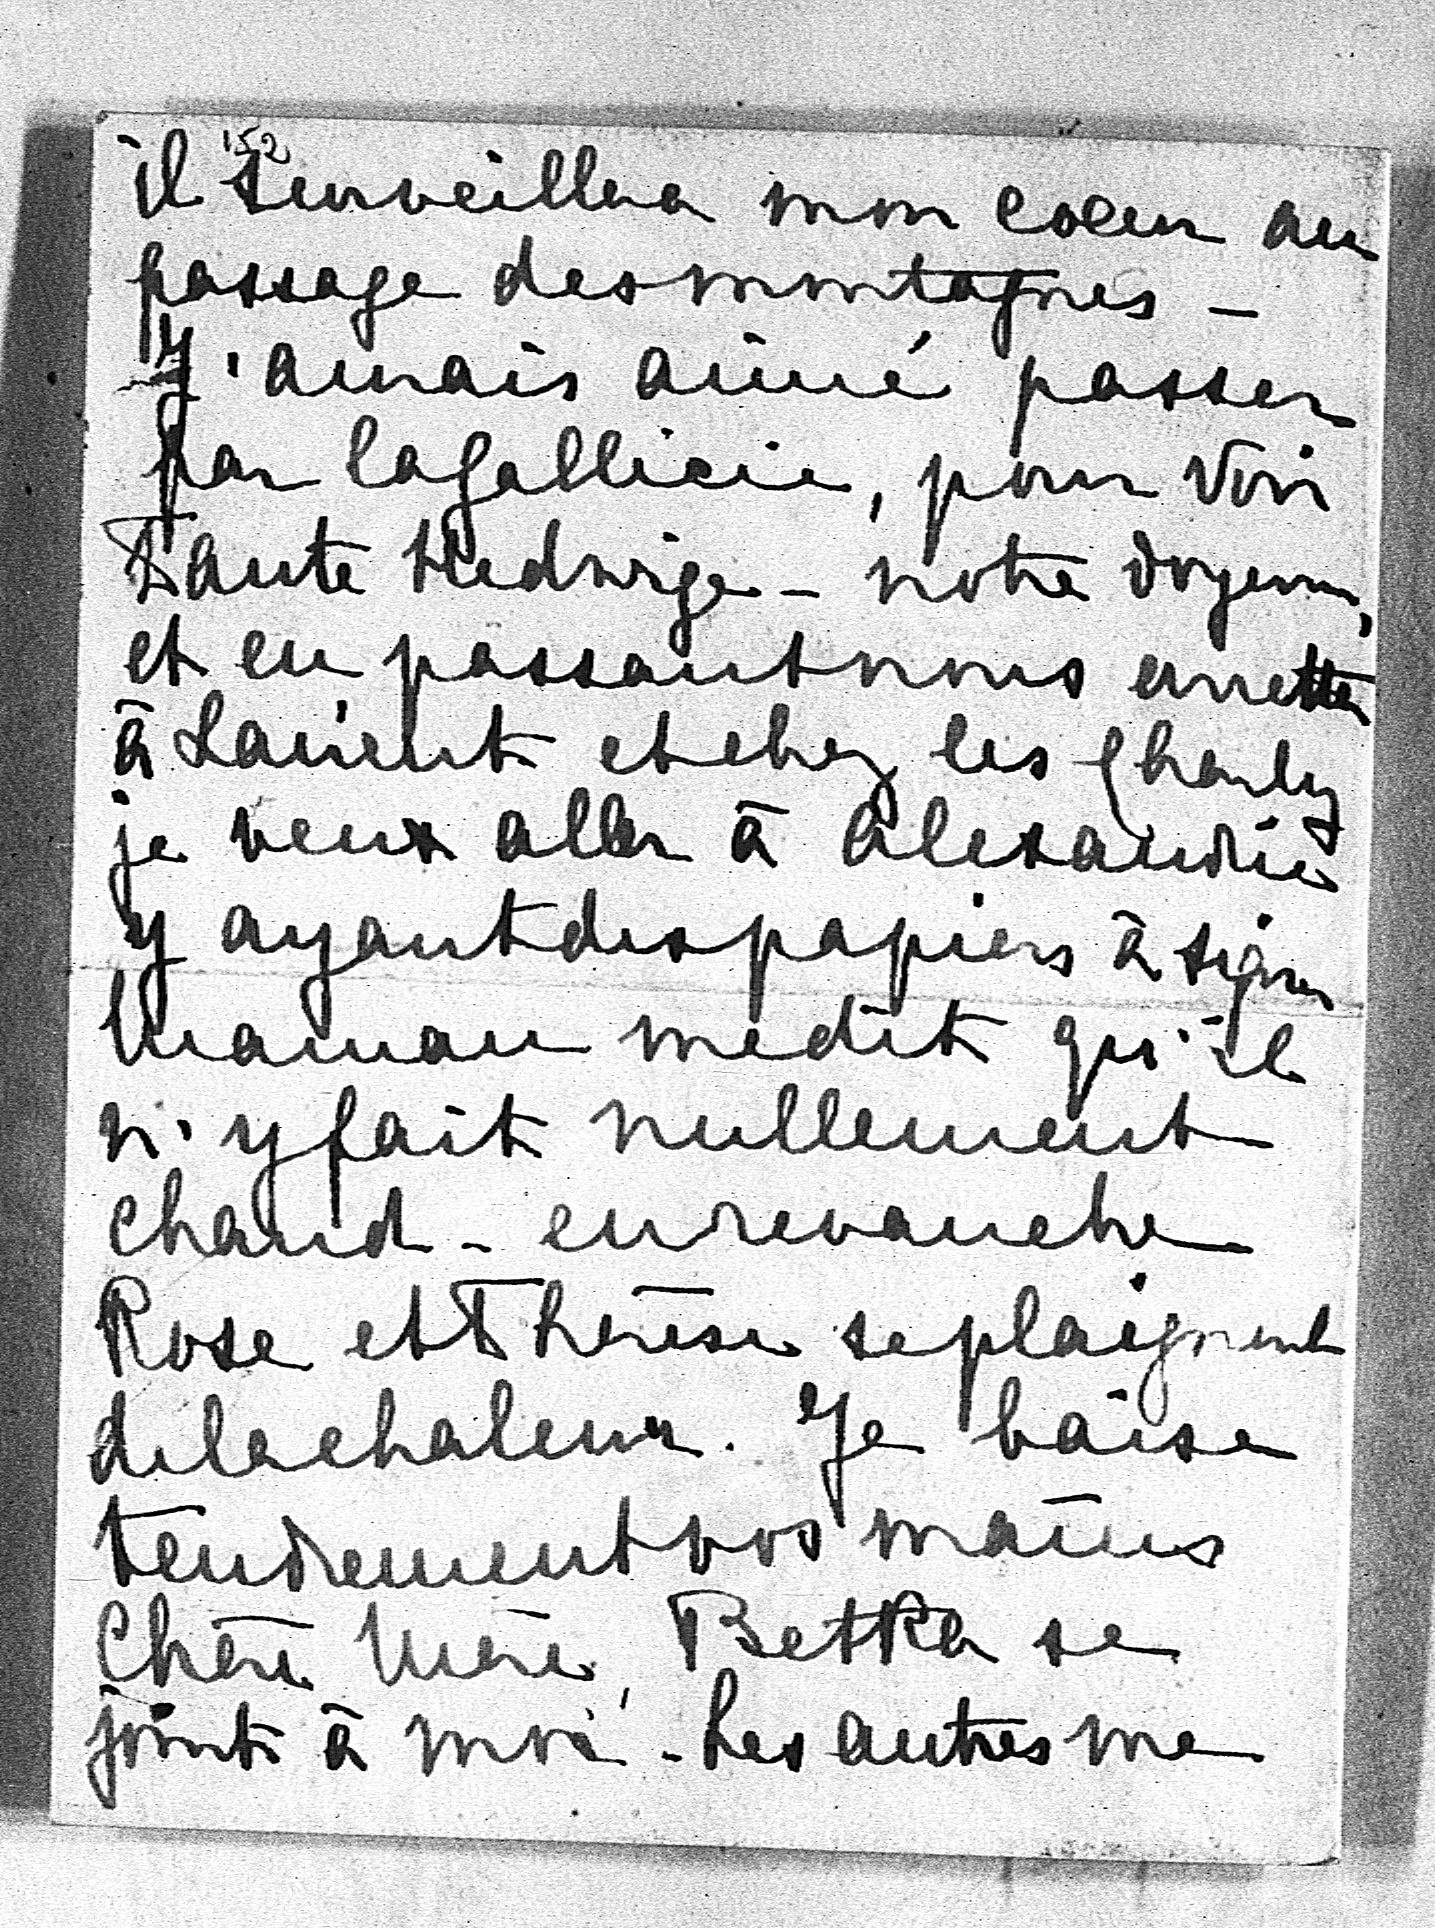 152
il surveillera mon coeur au
passage des montagnes -
J'aurais aimé passer
par la Gallicie, pour voir
Tante Hedwige - notre doyenne,
et en passant nous arrêter
à Laurent et chez les Charly
je veux aller à Alexandrie
y ayant des papiers à signer
Maman me dit qu'il
n'y fait nullement
chaud - en revanche
Rose et Thérèse se plaignent
de la chaleur. Je baise
tendrement vos mains
Chère Mère, Betka se
joint à moi - Les autres me